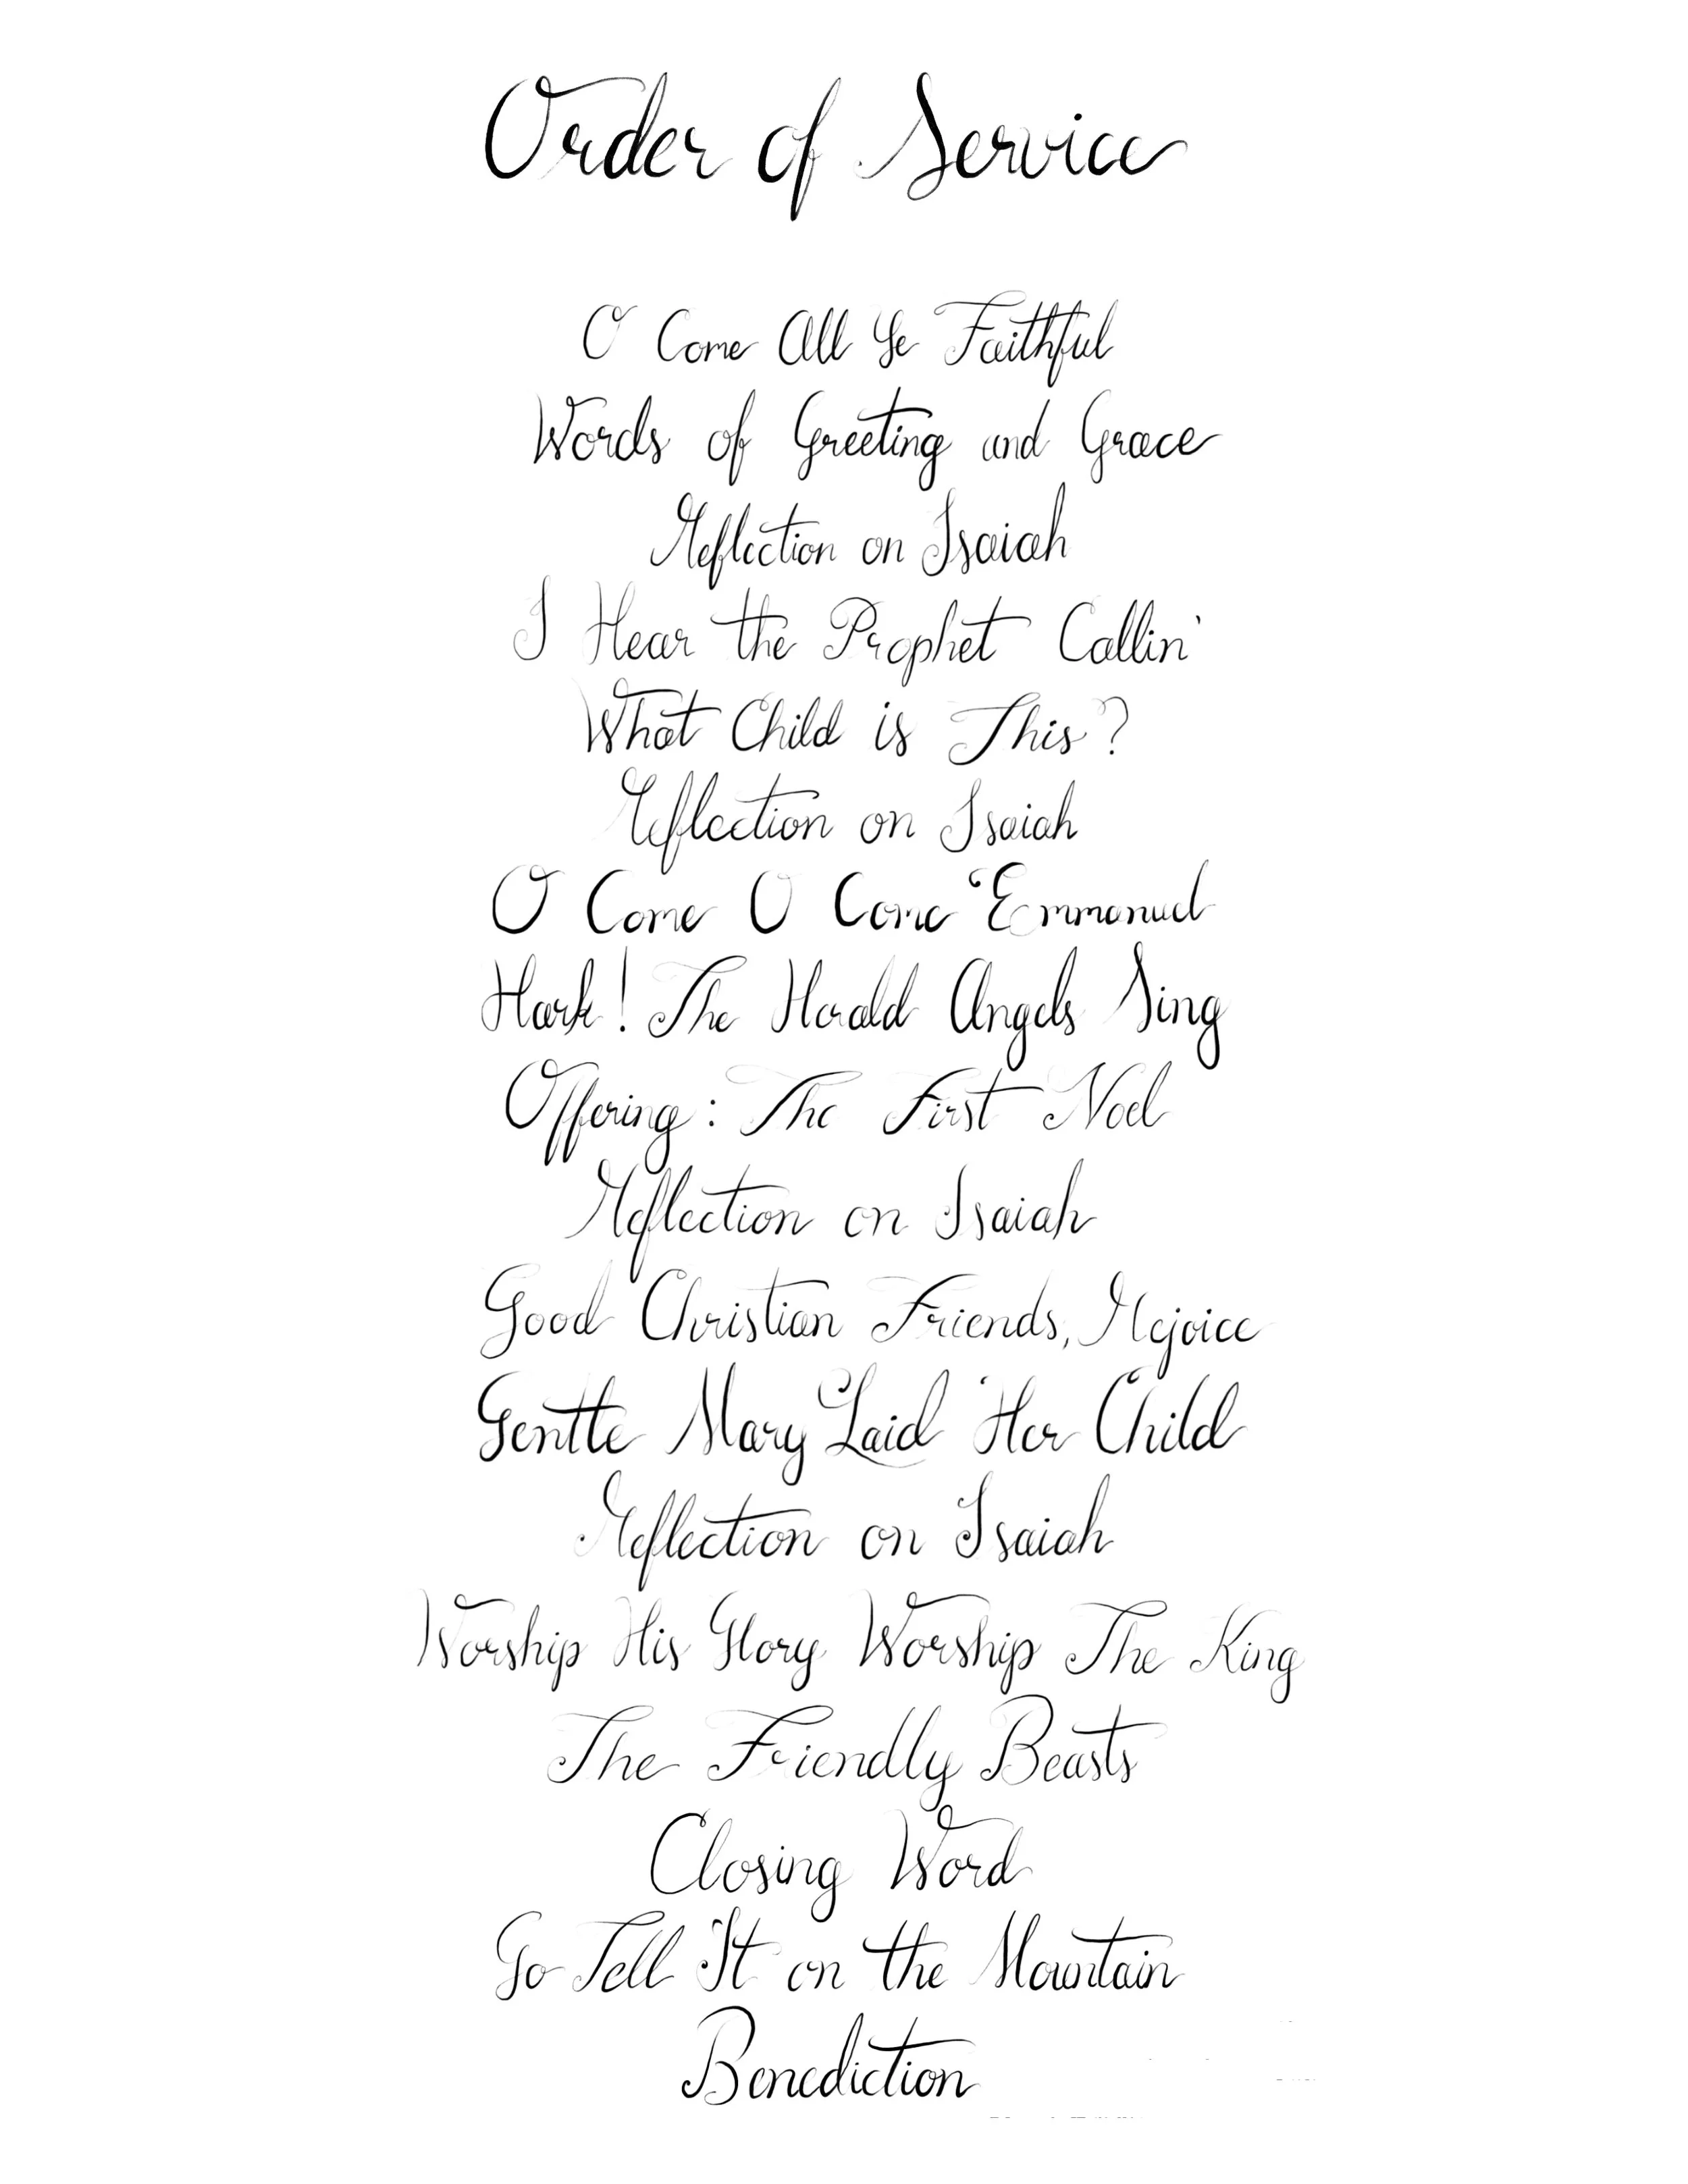 Order of Service
O Come All Ye Faithful
Words of Greeting and Grace
Reflection on Isaiah
I Hear the Prophet Callin'
What Child is This?
Reflection on Isaiah
O Come O Come Emmanuel
Hark! The Herald Angels Sing
Offering: The First Noel
Reflection on Isaiah
Good Christian Friends, Rejoice
Gentle Mary Laid Her Child
Reflection on Isaiah
Worship His Glory Worship The King
The Friendly Beasts
Closing Word
Go Tell It on the Mountain
Benediction